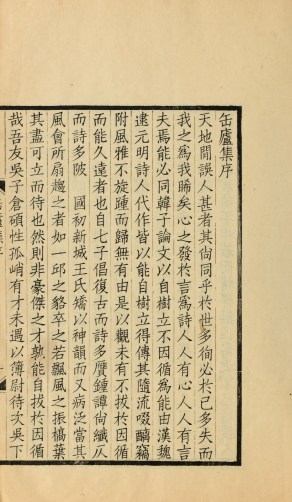 缶廬集序
天地間誤人甚者其尙同乎於世多徇必於己多失而
我之爲我晞矣心之發於言爲詩人人有心人人有言
夫焉能必同韓子論文以自樹立不因循爲能由漢魏
逮元明詩人代作皆以能自樹立得傳其隨流啜醨竊
附風雅不旋踵而歸無有由是以觀未有不拔於因循
而能久遠者也自七子倡復古而詩多贋鍾譚尙纖仄
而詩多陂　國初新城王氏矯以神韻而又病泛當其
風會所扇趨之者如一邱之貉卒之若飄風之振槁葉
其盡可立而待也然則非豪傑之才孰能自拔於因循
哉吾友吳子倉碩性孤峭有才未遇以簿尉待次吳下